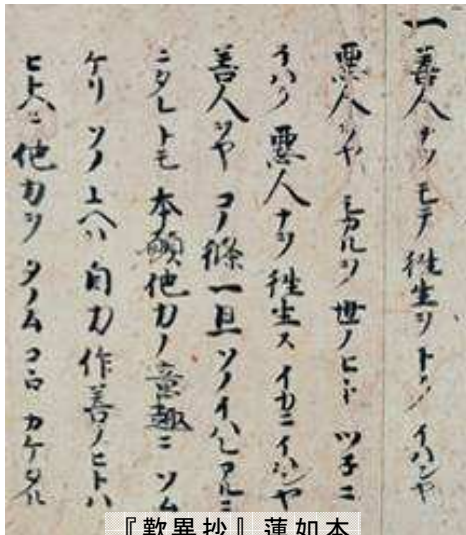 一 善人ナヲモテ往生ヲトク イハンヤ
悪人ヲヤ シカルヲ世ノヒト ツネニ
イハク 悪人ナヲ往生ス イカニイハンヤ
善人ヲヤ コノ條一旦ソノイハレアルニ
ニタレトモ 本願他力ノ意趣ニ ソム
ケリ ソノユヘハ 自力作善ノヒトハ
ヒトヘニ 他力ヲ タノムコヽロ カケタル
『歎異抄』蓮如本